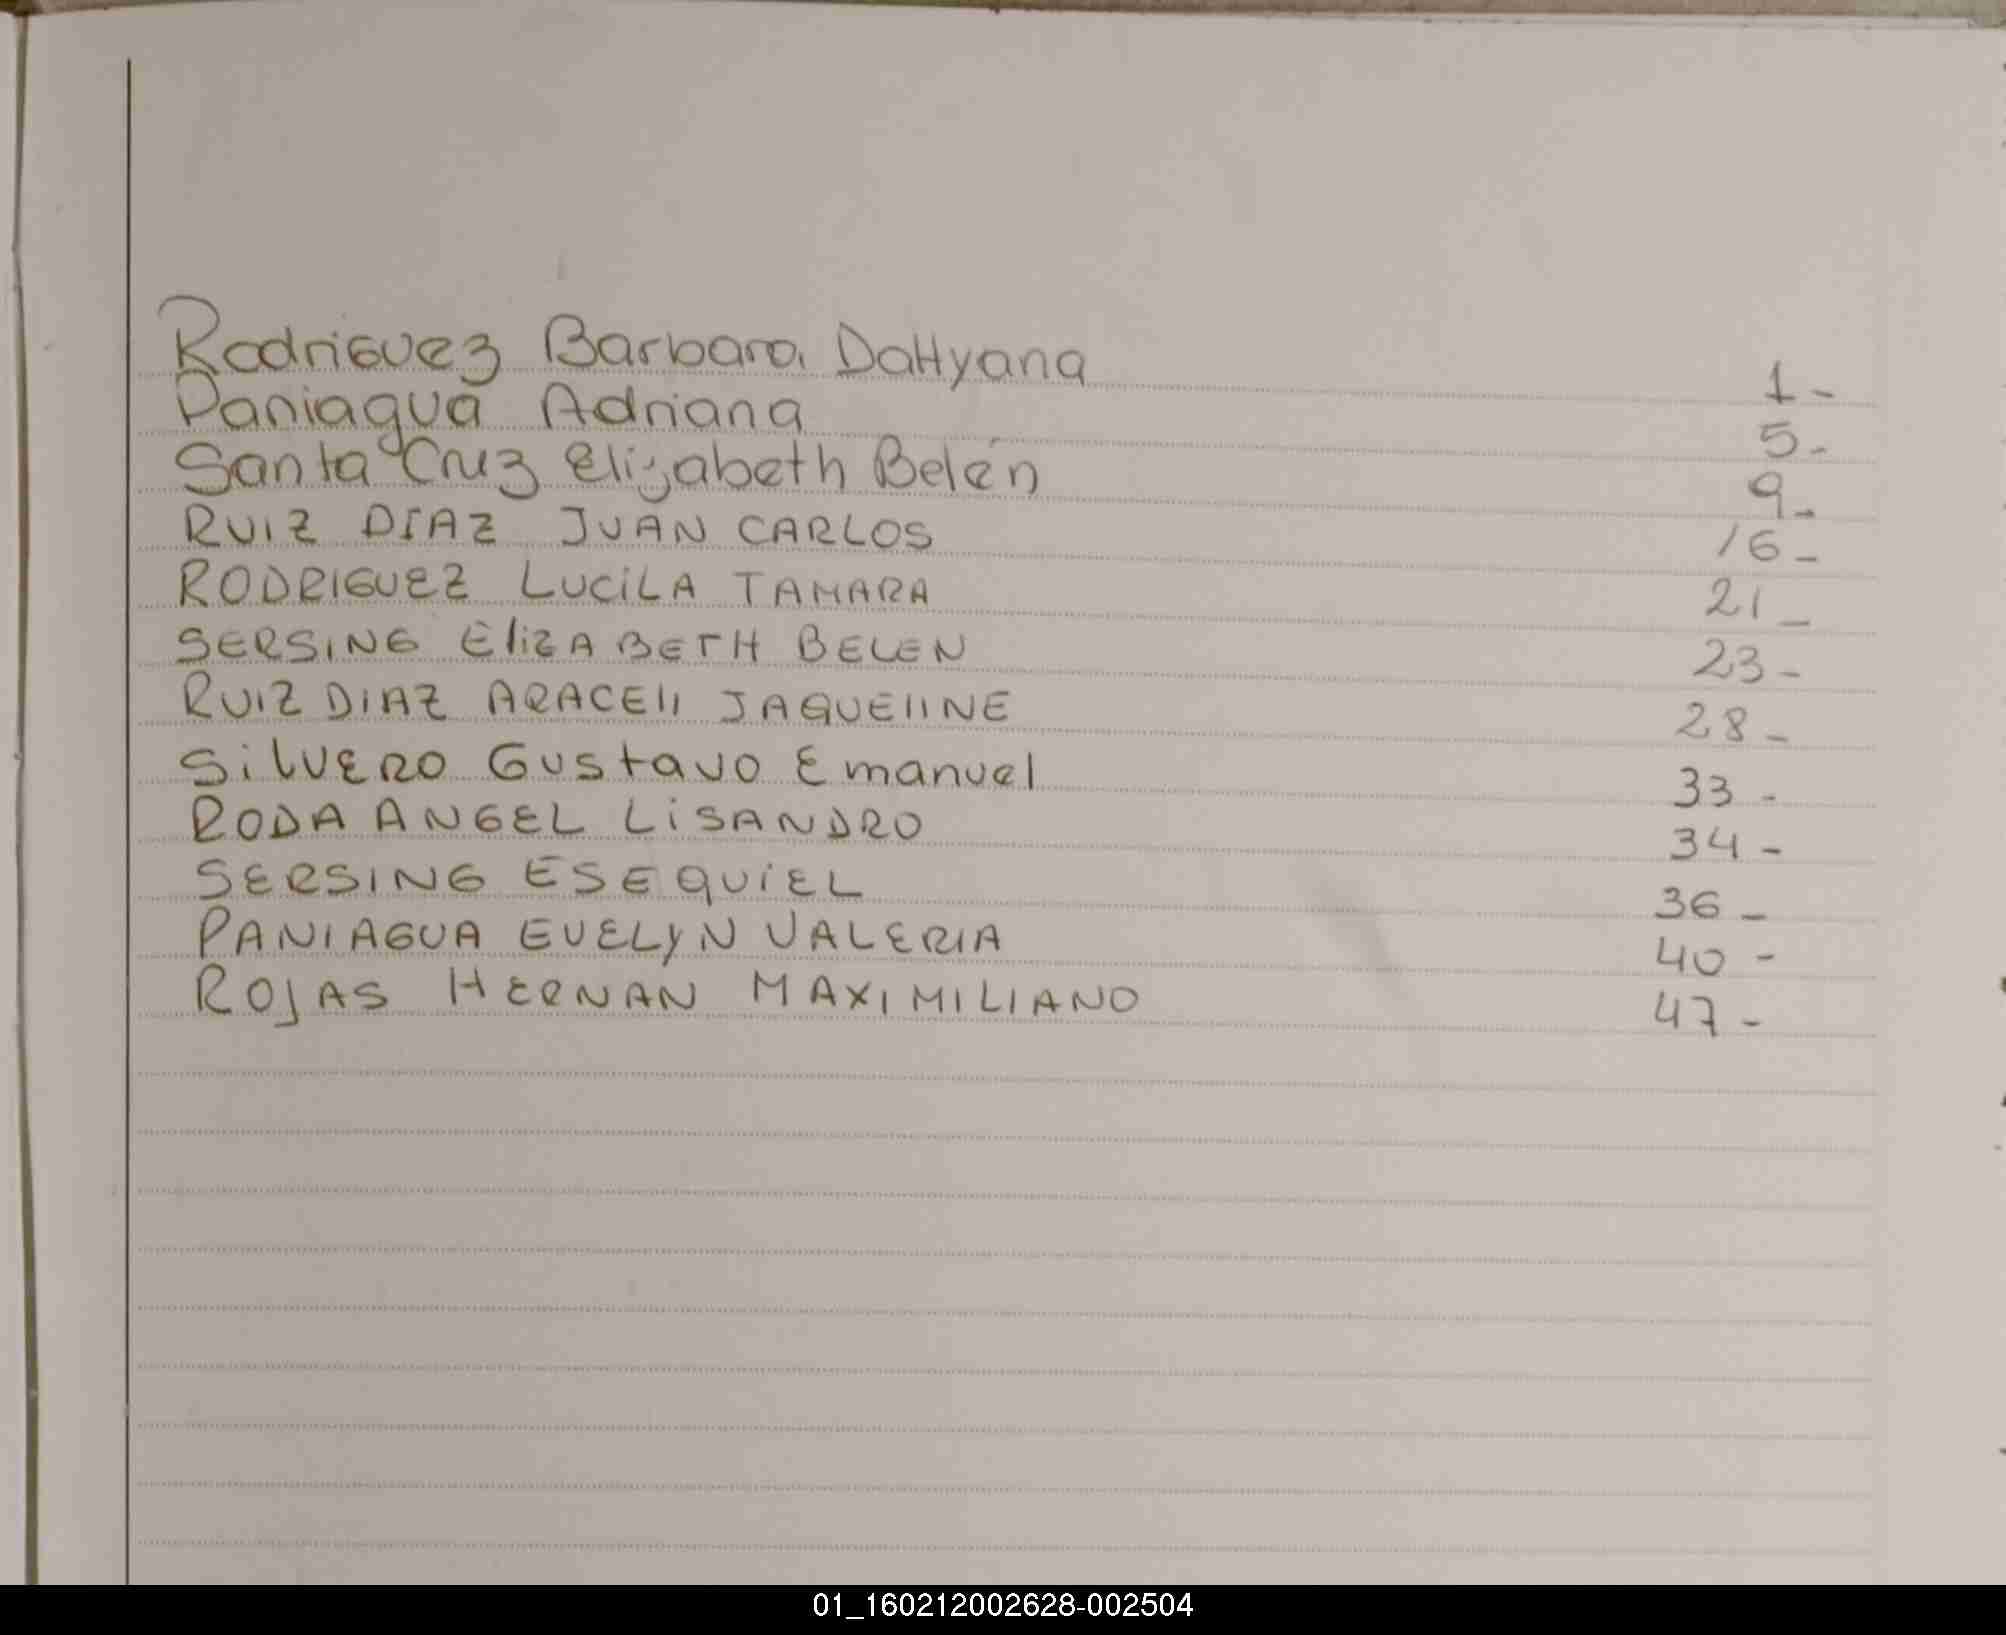 Rodriguez Barbara Dattyana 1-
Paniagua Adriana 5-
Santa Cruz Elizabeth Belén 9-
RUIZ DIAZ JUAN CARLOS 16-
RODRIGUEZ LUCILA TAMARA 21-
SERSING ElizABETH BELEN 23-
RUIZ DIAZ ARACEli JAQUEliNE 28-
SilVERO Gustavo Emanuel 33-
RODA ANGEL LISANDRO 34-
SERSING ESEQUIEL 36-
PANIAGUA EVELYN VALERIA 40-
ROJAS HERNAN MAXIMILIANO 47-
01_160212002628-002504